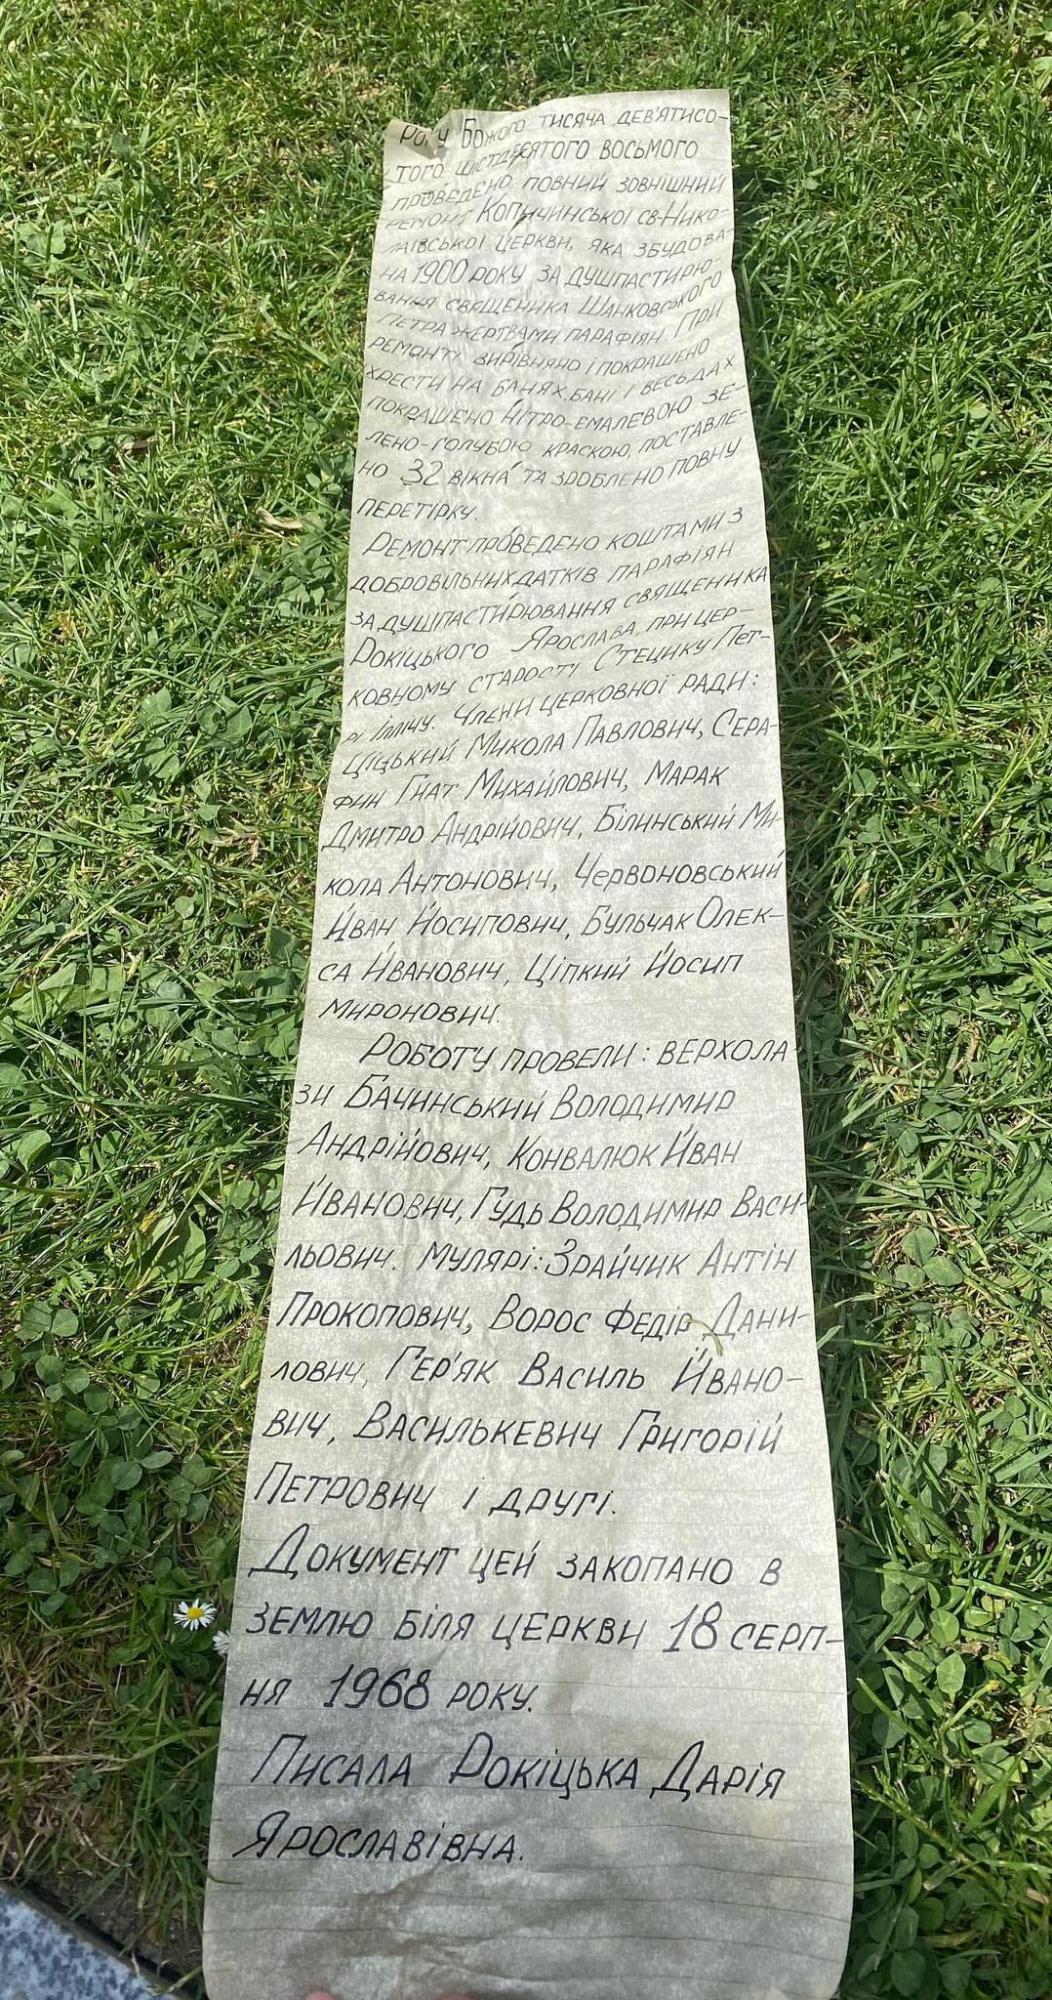 Року Божого тисяча дев'ятисо-
того шістдесятого восьмого
проведено повний зовнішний
ремонт Копичинської св-Нико-
лаівської церкви, яка збудова-
на 1900 року за душпастирю-
вання священика Шанковського
Петра жертвами парафіян. При
ремонті вирівняно і покрашено
хрести на банях, бані і весь дах
покрашено нітро-емалевою зе-
лено-голубою краскою, поставле-
но 32 вікна та зроблено повну
перетірку.
Ремонт проведено коштами з
добровільних датків парафіян
за душпастирювання священика
Рокіцького Ярослава, при цер-
ковному старості Стецику Пет-
рі Іллічу. Члени церковної ради:
Ціцький Микола Павлович, Сера-
фин Гнат Михайлович, Марак
Дмитро Андрійович, Білинський Ми-
кола Антонович, Червоновський
Йван Йосипович, Бульчак Олек-
са Йванович, Ціпкий Йосип
Миронович.
Роботу провели: верхола-
зи Бачинський Володимир
Андрійович, Конвалюк Йван
Йванович, Гудь Володимир Васи-
льович. Мулярі: Зрайчик Антін
Прокопович, Ворос Федір Дани-
лович, Гер'як Василь Йвано-
вич, Василькевич Григорій
Петрович і другі.
Документ цей закопано в
землю біля церкви 18 серп-
ня 1968 року.
Писала Рокіцька Дарія
Ярославівна.